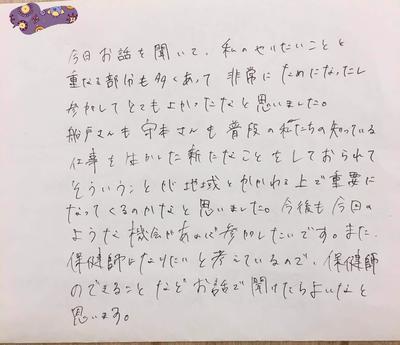 今日お話を聞いて、私のやりたいことと
重なる部分も多くあって 非常にためになったし
参加してとてもよかったなと思いました。
船戸さんも守本さんも普段の私たちの知っている
仕事をはかした新たなことをしておられて
そういうことが地域とかかわる上で重要に
なってくるのかなと思いました。今後も今回の
ような機会があれば参加したいです。また、
保健師になりたいと考えているので、保健師
のできることなどお話で聞けたらよいなと
思います。